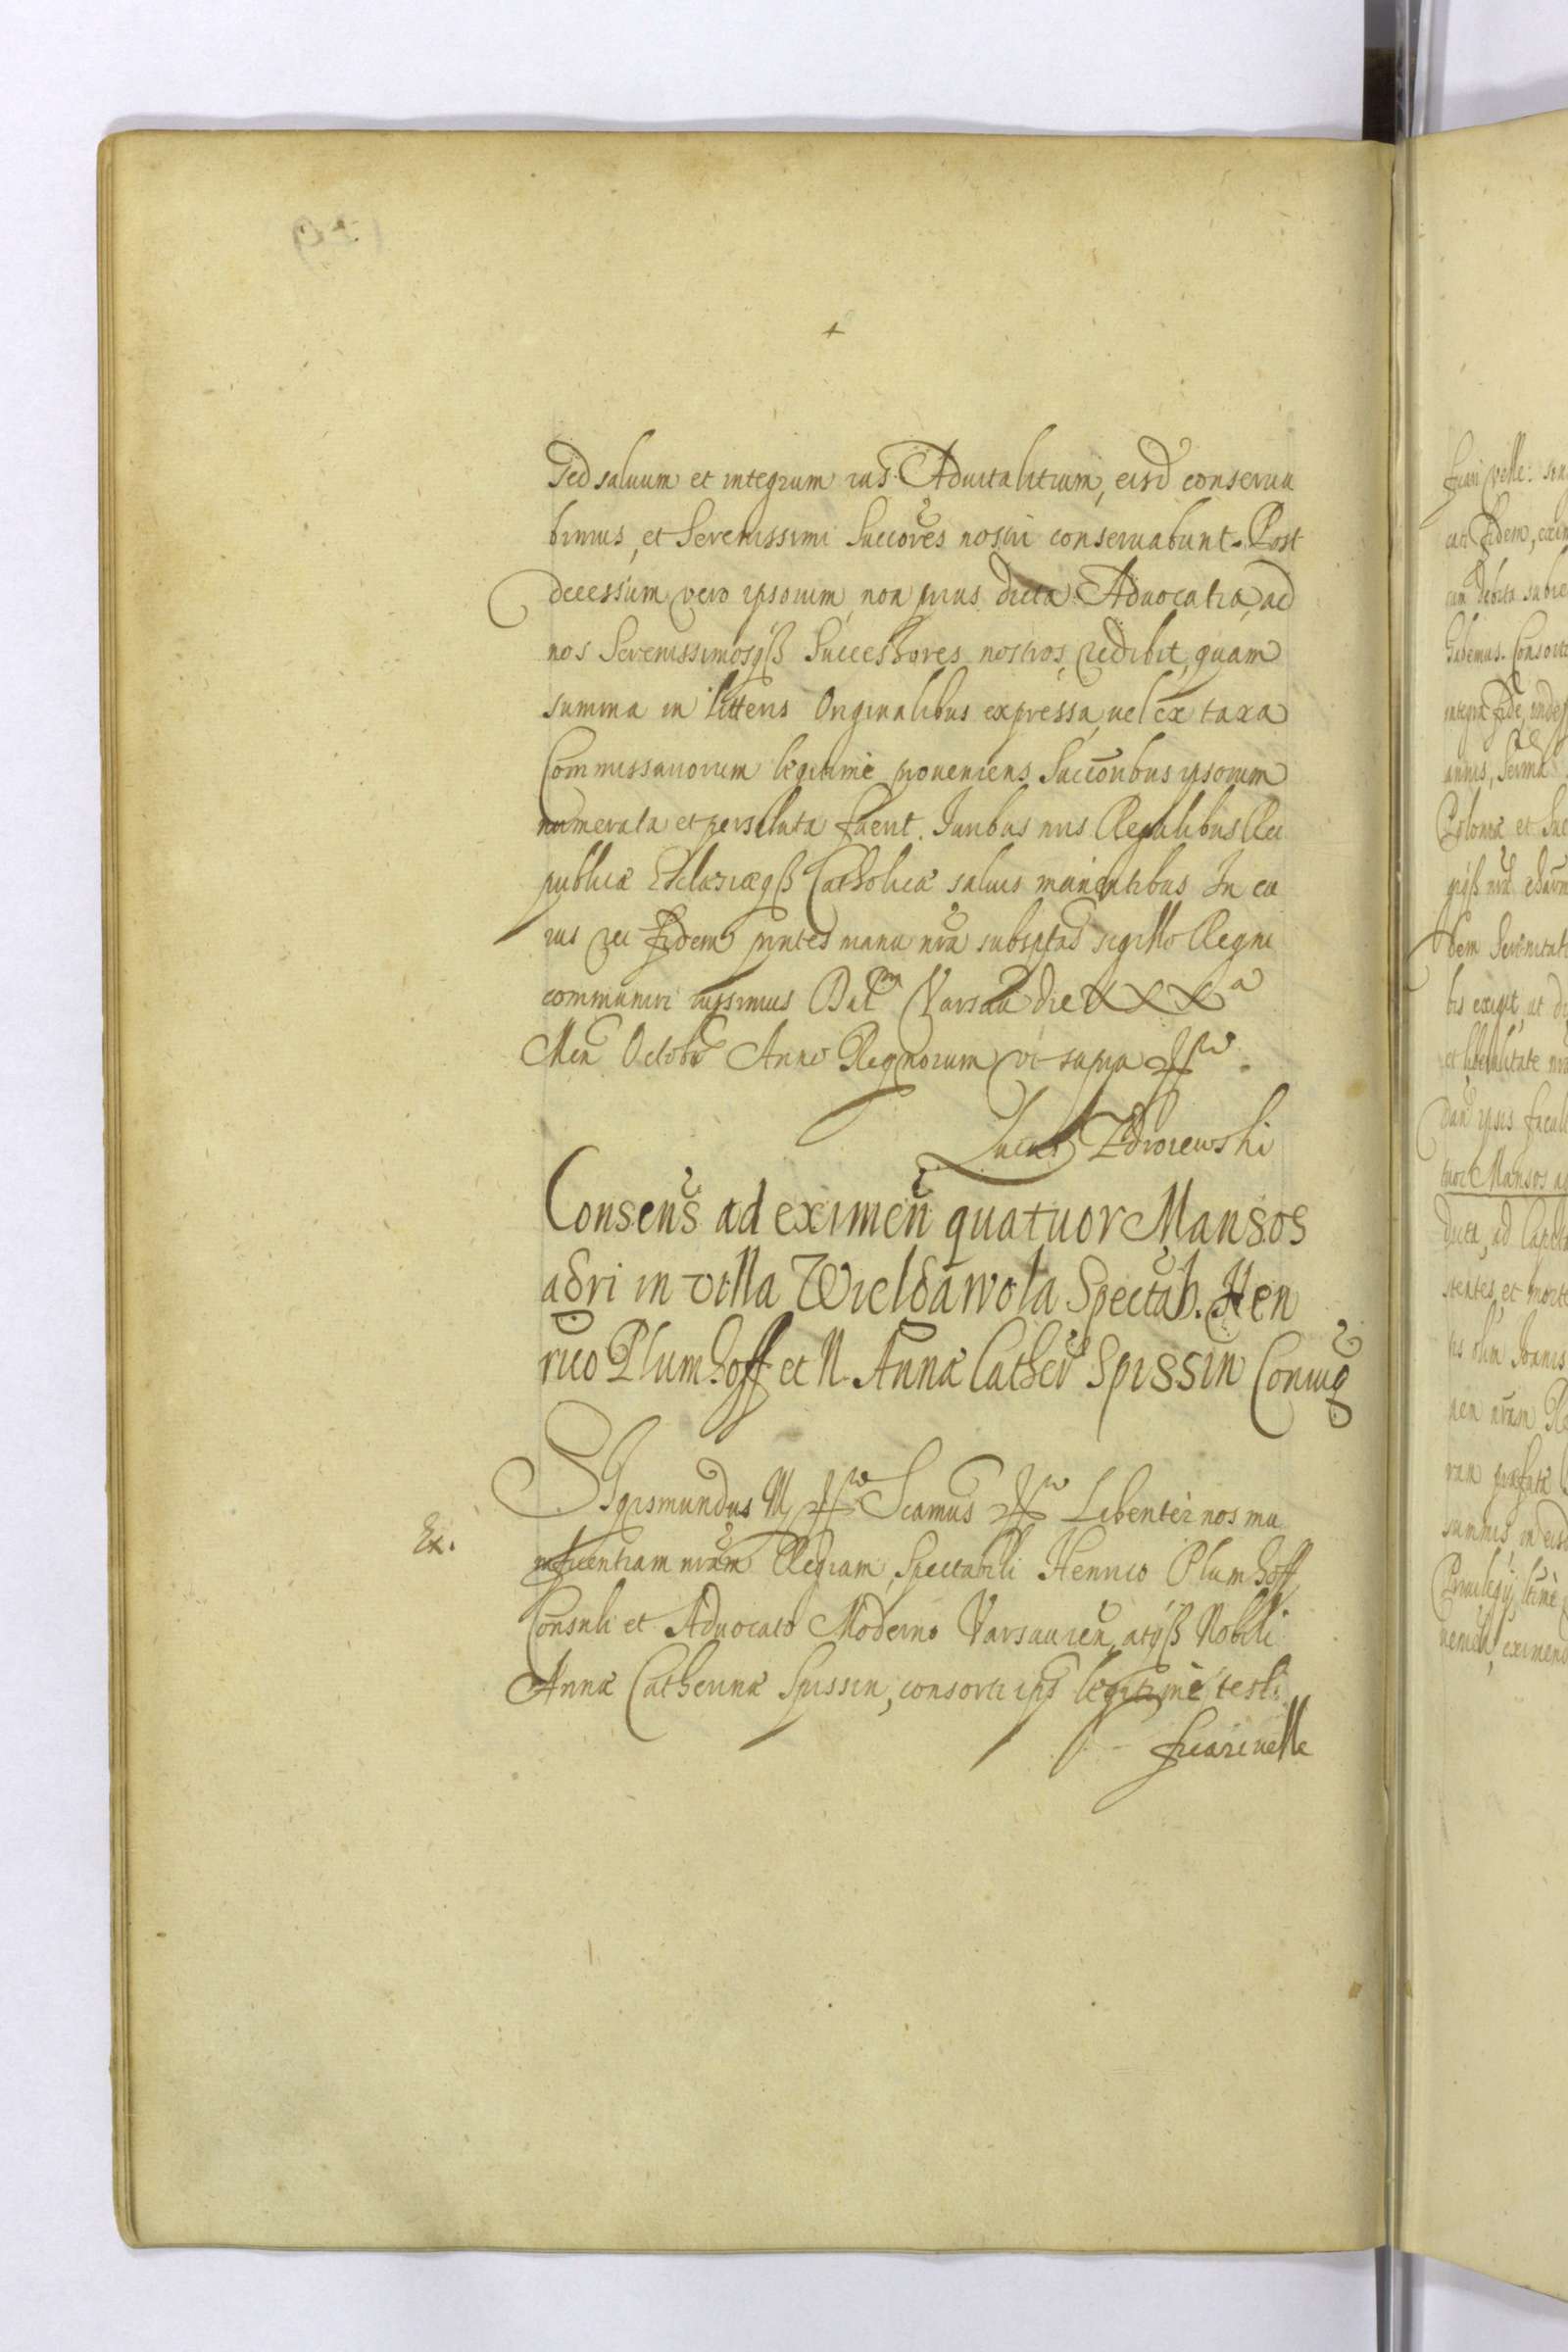 Sed saluum et integrum ius Aduitalitium, eisd conserua
bimus, et Serenissimi Succores nostri conseruabunt. Post
decessum vero ipsorum, non prius dicta Aduocatia, ad
nos Serenissimosqß Successores nostros redibit, quam
summa in litteris Originalibus expressa, uel ex taxa
Commissariorum legitimè proueniens Succoribus ipsorum
numerata et persoluta fuerit. Iuribus nris Regalibus Rei
publicæ Ecclesiæqß Catholicæ saluis manentibus In cu
ius rei fidem pntes manu nra subsptas sigillo Regni
communiri iussimus Datm Varsau die XXXa
Men Octobr Anno Regnorum vt supra
Lucas Zdroiewski
Consens ad eximen quatuor Mansos
agri in villa Wielgawola Spectab. Hen
rico Plumhoff et N. Annæ Cather Spissin Coniug
Ex.
Sigismundus III Scamus Libenter nos mu
nificentiam nram Regiam, Spectabili Henrico Plumhoff
Consuli et Aduocato Moderno Varsauien, atqß Nobili
Annæ Catherinæ Spissin, consorti ips legitimè testi
ficari uelle
ficari velle:
cari fidem,
integra fide,
annis,
Poloniæ et
bis exigit, ut
et liberalitate
dan ipsis
tuor Mansos
tis olim Ioannis
nen nram
summis, in
Priuilegij